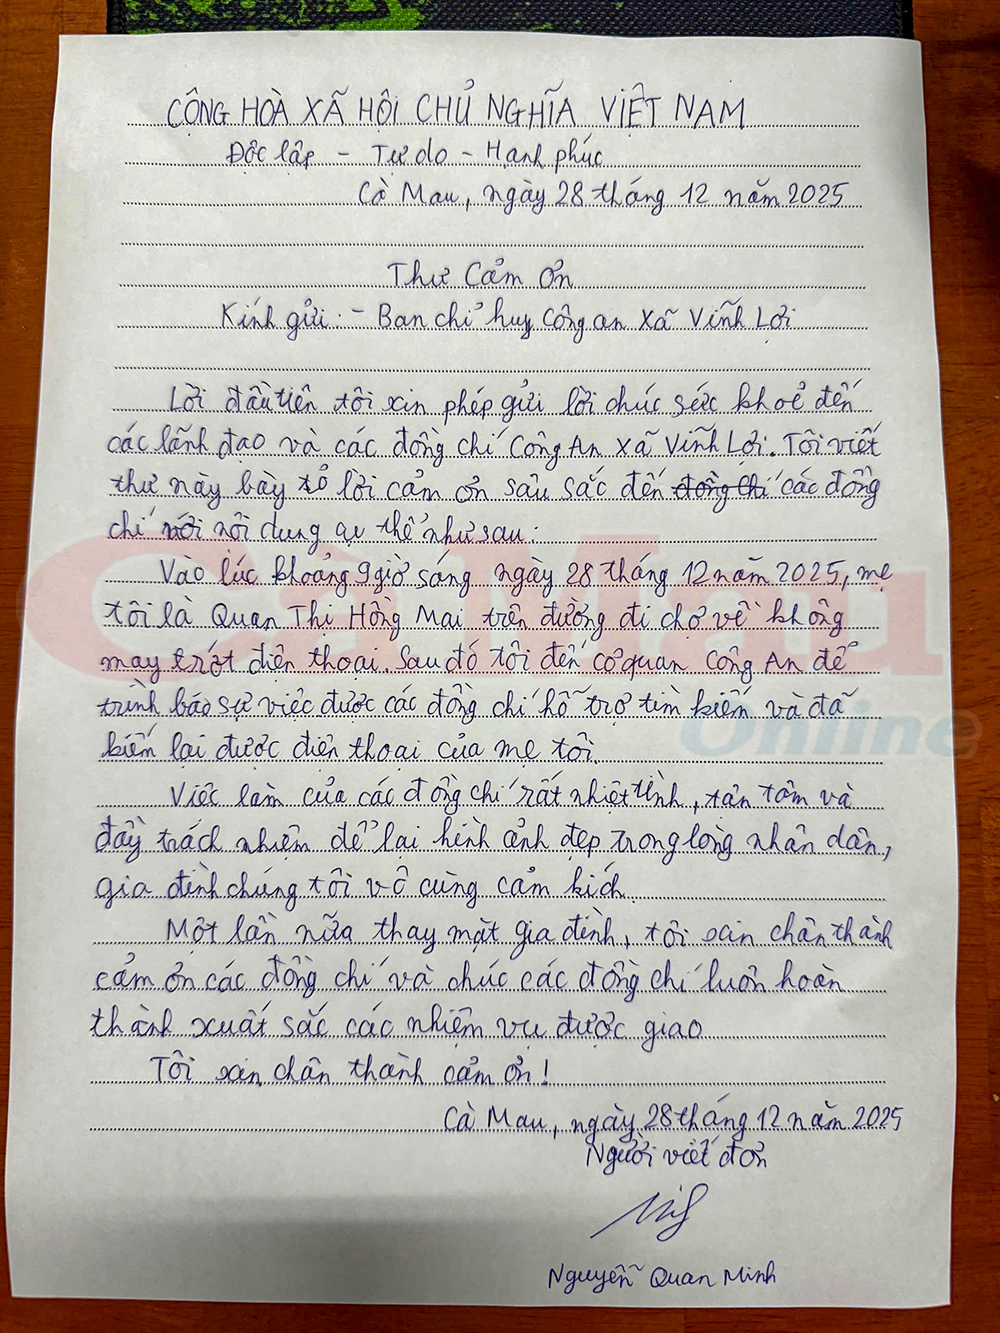 CỘNG HOÀ XÃ HỘI CHỦ NGHĨA VIỆT NAM
Độc lập - Tự do - Hạnh phúc
Cà Mau, ngày 28 tháng 12 năm 2025
Thư Cảm ơn
Kính gửi: - Ban chỉ huy Công an Xã Vĩnh Lợi
Lời đầu tiên tôi xin phép gửi lời chúc sức khoẻ đến
các lãnh đạo và các đồng chí Công An Xã Vĩnh Lợi. Tôi viết
thư này bày tỏ lời cảm ơn sâu sắc đến đồng chí các đồng
chí với nội dung cụ thể như sau:
Vào lúc khoảng 9 giờ sáng ngày 28 tháng 12 năm 2025, mẹ
tôi là Quan Thị Hồng Mai trên đường đi chợ về không
may trót điện thoại. Sau đó tôi đến cơ quan Công An để
trình báo sự việc được các đồng chí hỗ trợ tìm kiếm và đã
kiếm lại được điện thoại của mẹ tôi.
Việc làm của các đồng chí rất nhiệt tình, tận tâm và
đầy trách nhiệm để lại hình ảnh đẹp trong lòng nhân dân,
gia đình chúng tôi vô cùng cảm kích.
Một lần nữa thay mặt gia đình, tôi xin chân thành
cảm ơn các đồng chí và chúc các đồng chí luôn hoàn
thành xuất sắc các nhiệm vụ được giao
Tôi xin chân thành cảm ơn!
Cà Mau, ngày 28 tháng 12 năm 2025
Người viết đơn
Nguyễn Quan Minh
Cà Mau
Online